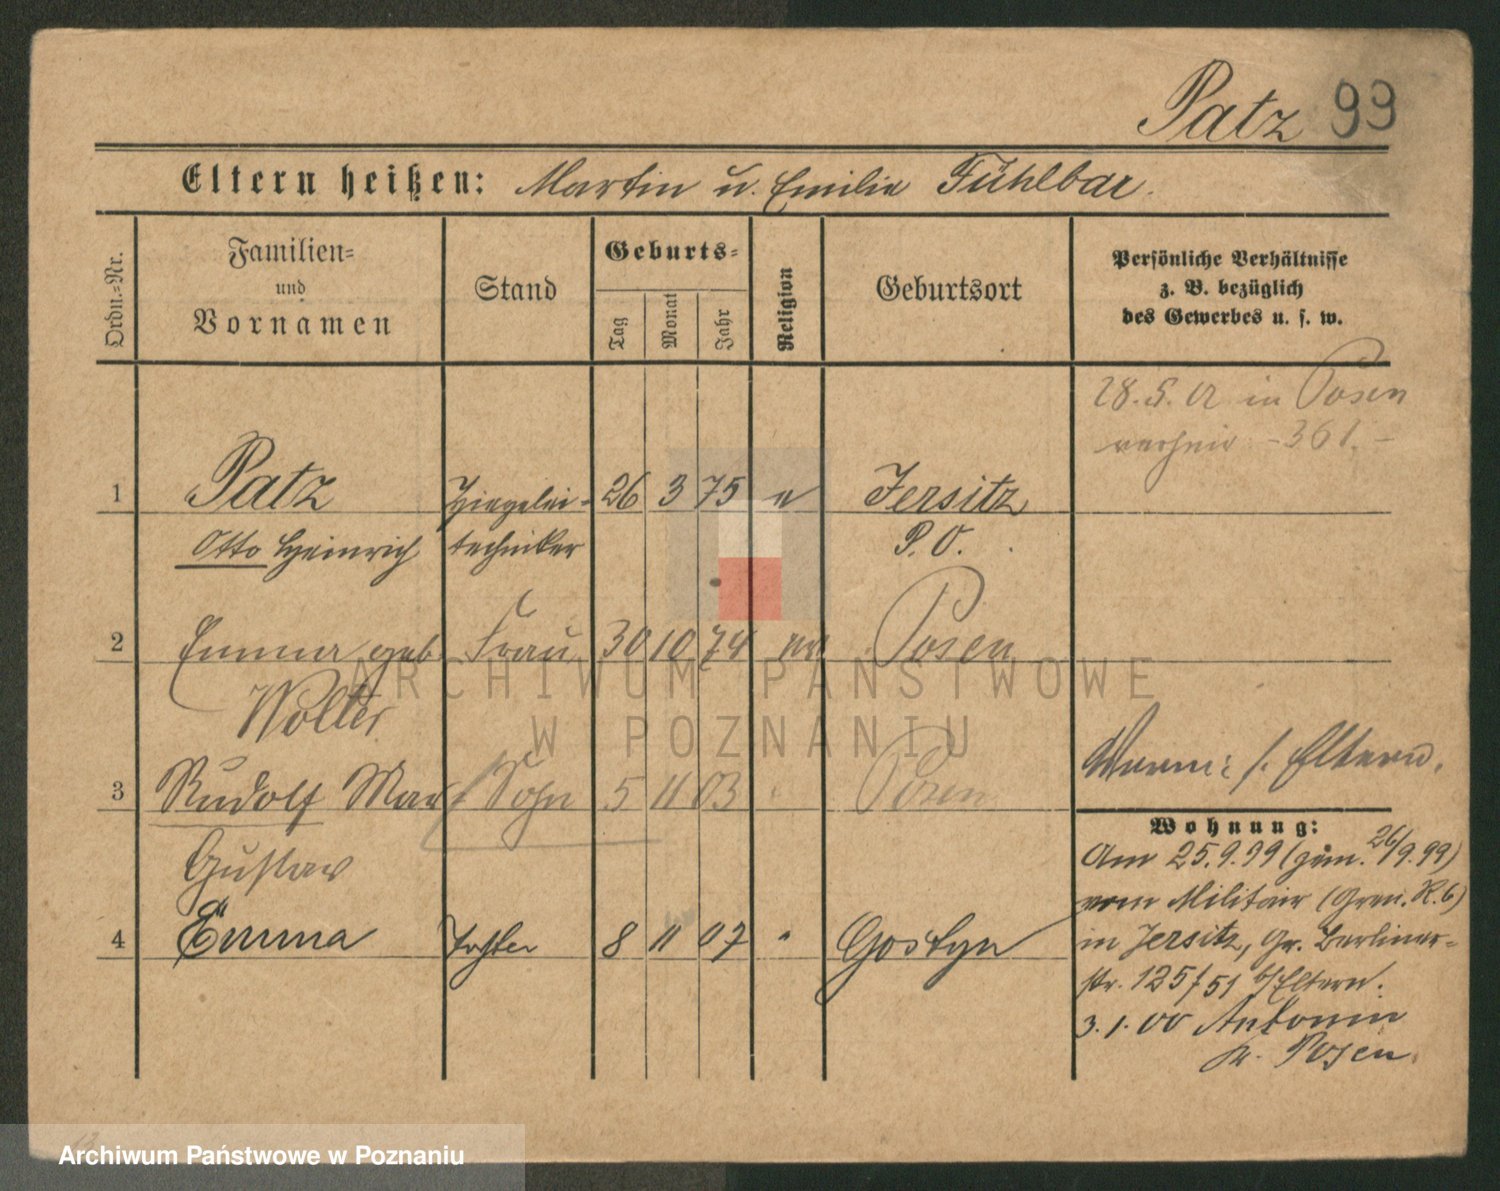 Patz 99
Eltern heißen: Martin u. Emilie Fühlbar.
Ordn.=Nr.
Familien=
und
Vornamen
Stand
Geburts=
Tag
Monat
Jahr
Religion
Geburtsort
Persönliche Verhältnisse
z. B. bezüglich
des Gewerbes u. s. w.
28.5.01 in Posen
verheir. -361.-
1 Patz Ziegelei= 26 3 75 e Jersitz
Otto Heinrich techniker P. O.
2 Emma geb. Frau 30 10 74 ev Posen
Wolter
3 Rudolf Max Sohn 5 11 03 Posen
Gustav
4 Emma Tochter 8 11 07 " Gostyn
s. Eltern.
Wohnung:
Am 25.9.99 (gem. 26/9.99)
vom Militair (Gren. R. 6)
in Jersitz, Gr. Berliner=
str. 125/51 b/Eltern.
3.1.00 Antonin
Kr. Posen.
ARCHIWUM PAŃSTWOWE
W POZNANIU
Archiwum Państwowe w Poznaniu